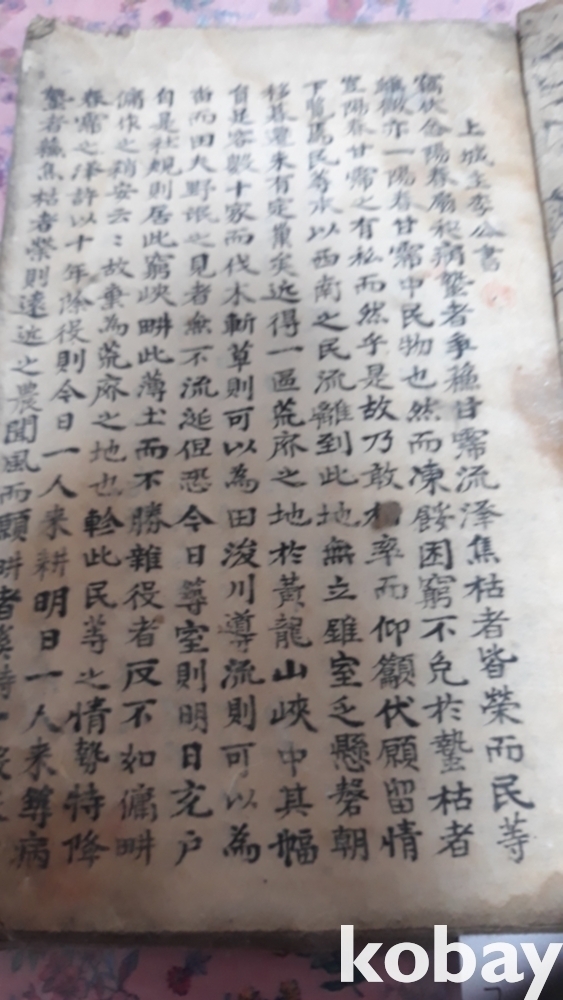 上城主李公書
窃以念陽春廟 病蟄者爭蘓甘霈流澤焦枯者皆榮而民等
雖微亦一陽春甘霈中民物也然而凍餒困窮不免於蟄枯者
豈陽春甘霈之有私而然乎是故乃敢 率而仰籲伏願留情
下覽焉民等永以西南之民流離到此地無立錐室乏懸磬朝
移暮遷未有定巢矣近得一區荒廢之地於黃龍山峽中其幅
自足容數十家而伐木斬草則可以為田浚川導流則可以為
畓而田夫野氓之見者無不流涎但恐今日蓴室則明日充户
自是社規則居此窮峽畊此薄土而不勝雜役者反不如傭畊
傭作之稍安云云故棄為荒廢之地也軫此民等之情勢特降
春霈之澤許以十年除役則今日一人來耕明日一人来蓴病
蟄者蘓焦枯者榮則遠近之農聞風而願畊者